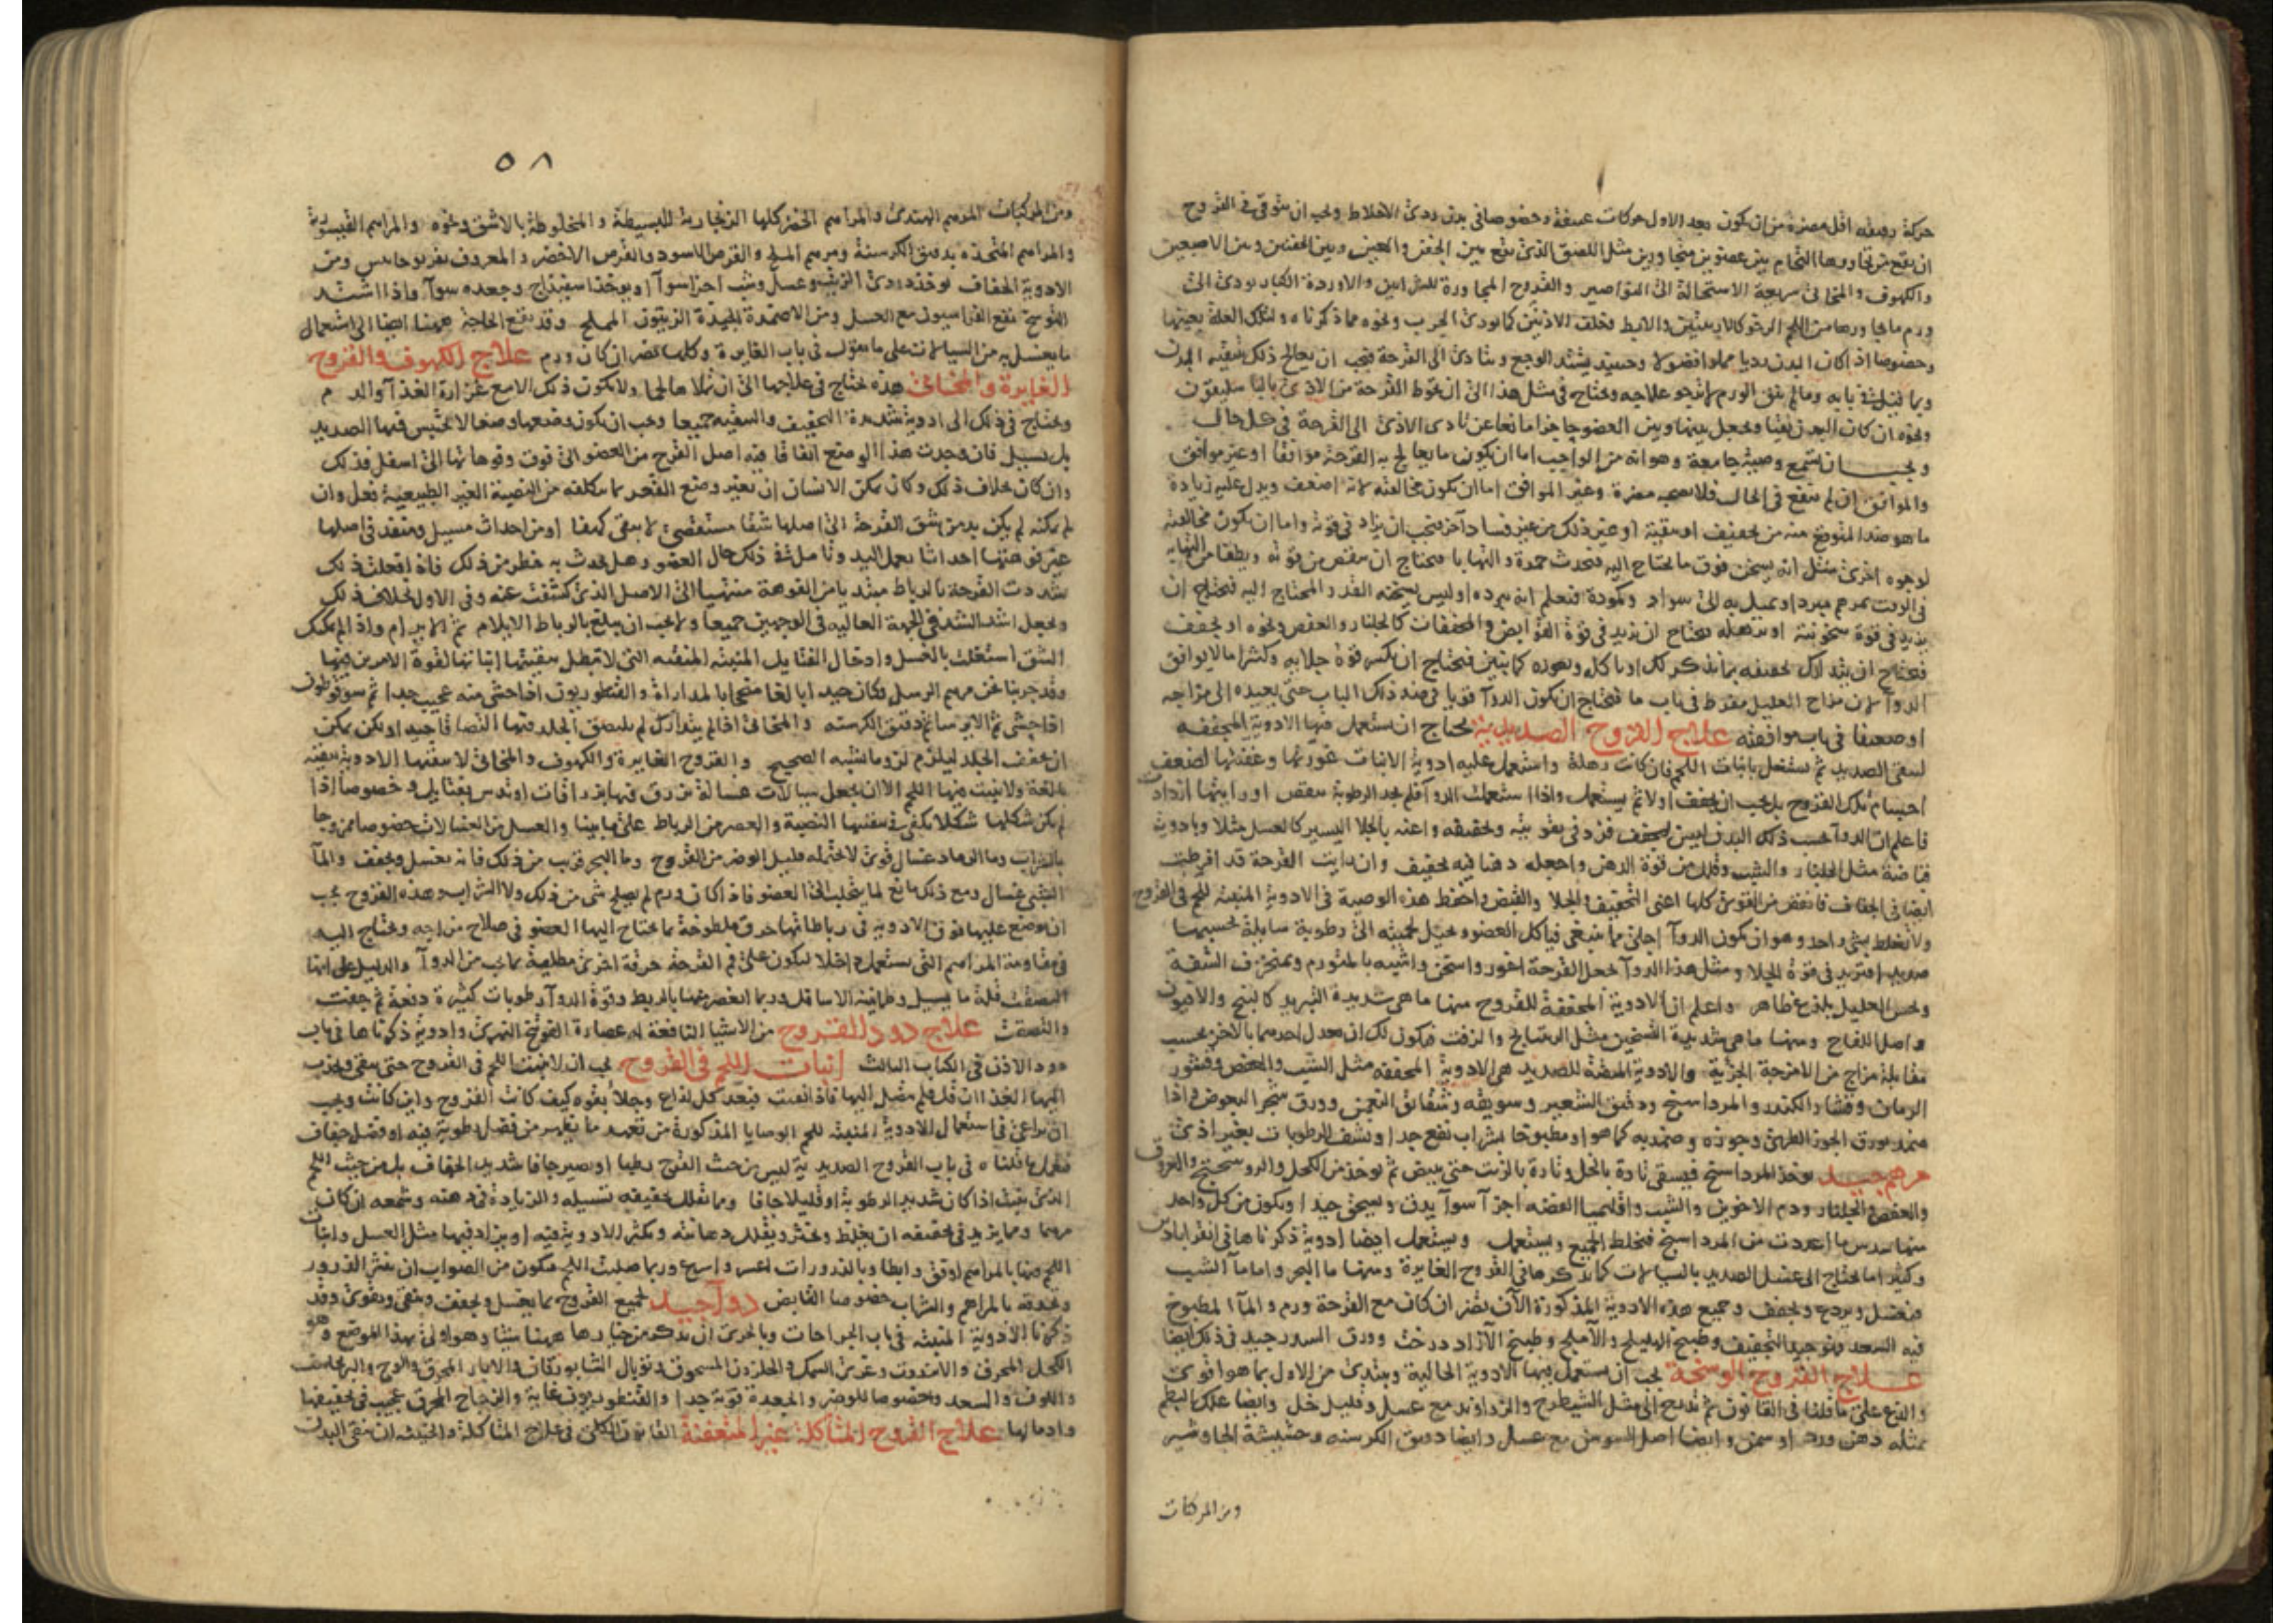 حركة رجفه اقل مضرة من ان يكون بعد الاول حركات عنيفة وخصوصا في بدن ردئ الاخلاط ويجب ان يتوقى في القروح
ان يقع من تجاورها التحام بين عضوين متجاورين مثل اللصق الذي يقع بين الجفن والعين وبين الجفنين وبين الاصبعين
والكهوف والمخابئ سريعة الاستحالة الى النواصير والقروح المجاورة للشرايين والاوردة الكبار يودي الى
ورم ما يجاورها من اللحم الرخو كالاربيتين والابط وخلف الاذنين كما يودي الجرب ونحوه مما ذكرناه ولتلك العلة بعينها
وخصوصا اذا كان البدن رديا مملوا فضولا وحينئذ يشتد الوجع ويتادى الى القرحة فيجب ان يعالج ذلك بتنقية البدن
وبما قيل في بابه وما لم ينق الورم لم يرج علاجه ويحتاج في مثل هذا الى ان يحوط القرحة من الاذى
ونحوه ان كان البدن نقيا ويجعل بينها وبين العضو حاجزا مانعا عن تادي الاذى الى القرحة في كل حال
ويجب ان تسمع وصية جامعة وهو انه من الواجب اما ان يكون ما يعالج به القرحة موافقا او غير موافق
والموافق ان لم ينفع في الحال فلا يصحبه مضرة وغير الموافق اما ان يكون مخالفته لانه اضعف ويدل عليه زيادة
ما هو ضد المتوقع منه من تجفيف او تنقية او غير ذلك من غير فساد آخر فيجب ان يزاد في قوته واما ان يكون مخالفته
لوجوه اخرى مثل انه يسخن فوق ما يحتاج اليه فتحدث حمرة والتهابا فيحتاج ان ينقص من قوته ويطفا من التهابه
في الوقت بمرهم مبرد او يميل به الى سواد وكمودة فتعلم انه يبرده او ليس يسخنه القدر المحتاج اليه فتحتاج ان
يزيد في قوة سخونته او يرهله فتحتاج ان تزيد في قوة القوابض والمجففات كالجلنار والعفص ونحوه او يجفف
فتحتاج ان يتدارك تجفيفه بما نذكر لك او ياكل ويغوره كما نبين فتحتاج ان تكسر قوة جلايه وكثيرا ما لا يوافق
الدواء لان مزاج العليل مفرط في باب ما فيحتاج ان يكون الدواء قويا في ضد ذلك الباب حتى يعيده الى مزاجه
او ضعيفا في باب موافقته علاج القروح الصديدية يحتاج ان تستعمل فيها الادوية المجففه
لينقى الصديد ثم يشتغل بانبات اللحم فان كانت رهلة واستعمل عليه ادوية الانبات غورتها وعفنتها لضعف
اجسام تلك القروح بل يجب ان يجفف اولا ثم يستعمل واذا استعملت الدواء فلم تجد الرطوبة تنقص او رايتها ازدادت
فاعلم ان الدواء بحسب ذلك البدن ليس بمجفف فزد في تقويته وتجفيفه واعنه بالجلا اليسير كالعسل مثلا وبادوية
قابضة مثل الجلنار والشب وقلل من قوة الدهن واجعله دهنا فيه تجفيف وان رايت القرحة قد افرطت
ايضا في الجفاف فانقص من القوى كلها اعنى التجفيف والجلا والقبض واحفظ هذه الوصية في الادوية المنبتة للحم في القروح
ولا تغلط بشئ واحد وهو ان يكون الدواء اجلى مما ينبغي فياكل العضو ويحيل لحميته الى رطوبة سايلة تحسبها
صديدا فتزيد في قوة الجلا ومثل هذا الدواء يجعل القرحة اغور واسخن واشبه بالمتورم ويخزف الشفة
ويحس العليل بلذع ظاهر واعلم ان الادوية المجففة للقروح منها ما هي شديدة التبريد كالبنج والافيون
واصل اللفاح ومنها ما هي شديدة التسخين مثل الريتيانج والزفت فيكون لك ان تعدل احدهما بالاخر بحسب
مقابلة مزاج من الامزجة الجزئية والادوية المنقية للصديد هي الادوية المجففه مثل الشب والعفص وقشور
الرمان وقشار الكندر والمرداسنج ودقيق الشعير وسويقه وشقائق النعمن وورق شجر البعوض واذا
ضمد بورق الجوز الطري وجوزه وضمد به كما هو او مطبوخا بشراب نفع جدا ونشف الرطوبات بغير اذى
مرهم جيد يوخذ المرداسنج فيسقى تارة بالخل وتارة بالزيت حتى يبيض ثم يوخذ من الكحل والروسختج والعروق
والعفص والجلنار ودم الاخوين والشب واقليميا الفضه اجزاء سواء يدق ويسحق جيدا ويكون من كل واحد
منها سدس ما اعددت من المرداسنج فتخلط الجميع ويستعمل ويستعمل ايضا ادوية ذكرناها في القراباذين
وكثيرا ما يحتاج الى غسل الصديد بالسيالات كما نذكرها في القروح الغايرة ومنها ما البحر واما ماء الشب
فيغسل ويردع ويجفف وجميع هذه الادوية المذكورة الآن تضر ان كان مع القرحة ورم والماء المطبوخ
فيه السعد فهو جيد التجفيف وطبيخ الهليلج والآملج وطبيخ الآزاد درخت وورق السدر جيد في ذلك ايضا
علاج القروح الوسخة يجب ان تستعمل فيها الادوية الجالية ويبتدئ من الاول بما هو اقوى
والذع على ما قلنا في القانون ثم تدرج الى مثل الشيطرج والزراوند مع عسل وقليل خل وايضا علك البطم
بمثله دهن ورد او سمن وايضا اصل السوسن مع عسل وايضا دقيق الكرسنه وحشيشة الجاوشير
ومن المركبات
٥٨
ومن المركبات المرهم الهندي والمراهم الخضر كلها الزنجارية البسيطة والمخلوطة بالاشق ونحوه والمراهم القيسورية
والمراهم المتخذه بدقيق الكرسنة ومرهم الملح والقرص الاسود والقرص الاخضر والمعروف بفربوحاس ومن
الادوية الجفاف يوخذ دردي الزيت وعسل وشب اجزاء سواء او يوخذ اسفيداج وجعده سواء واذا اشتد
التوسخ نفع الفراسيون مع العسل ومن الاضمدة الجيدة الزيتون المملح وقد يقع الحاجة ههنا ايضا الى استعمال
ما يغسل به من السيالات على ما نقول في باب الغايرة وكلها تضر ان كان ورم علاج الكهوف والقروح
الغايرة والمخابئ هذه يحتاج في علاجها الى ان تملا لحما ولا يكون ذلك الا مع غزارة الغذاء والدم
ويحتاج في ذلك الى ادوية شديدة التجفيف والتنقيه جميعا ويجب ان يكون وضعها وضعا لا يحتبس فيها الصديد
بل يسيل فان وجدت هذا الوضع اتفاقا فيه اصل القرح من العضو الى فوق وفوهاتها الى اسفل فذلك
وان كان خلاف ذلك وكان يمكن الانسان ان يغير وضع القعر بما يتكلفه من النصبة الغير الطبيعية فعل وان
لم يمكنه لم يكن بد من شق القرحة الى اصلها شقا مستقصى لا يبقى كهفا او من احداث مسيل ومنفذ في اصلها
غير فوهتها احداثا بعمل اليد وتامل في ذلك حال العضو وهل يحدث به خطر من ذلك فاذا فعلت ذلك
شددت القرحة بالرباط مبتديا من الفوهة منتهيا الى الاصل الذي كشفت عنه وفي الاول بخلاف ذلك
وتجعل اشد الشد في الجهة العاليه في الوجهين جميعا ولا يجب ان يبلغ بالرباط الايلام ثم الايرام واذا لم يمكنك
الشق استغلت بالغسل وادخال الفتايل المنبته المنقيه التي لا تبطل تنقيتها انباتها لقوة الامرين فيها
وقد جربنا نحن مرهم الرسل فكان جيدا بالغا متجحا بالمداراة والقنطوريون اذا حشى منه عجيب جدا ثم سوقوطون
اذا حشى ثم الايرسا ثم دقيق الكرسنه والمخابئ اذا لم يتدارك لم يلتصق الجلد فيها التصاقا جيدا ولكن يمكن
ان يجفف الجلد ليلزم لزوما يشبه الصحيح والقروح الغايرة والكهوف والمخابئ لا تنفعها الادوية المنقيه
بالغة ولا ينبت فيها اللحم الا ان يجعل سيالات غسالة تزرق فيها بزراقات او تدس بفتايل وخصوصا اذا
لم يكن شكلها شكلا يكفى في تنقيتها النصبة والعصر من الرباط على ما بينا والعسل من الغسالات خصوصا ممزوجا
بالشراب وما الرماد غسال قوي لا يحتمله قليل الوضر من القروح وما البحر قريب من ذلك فانه يغسل ويجفف والماء
الشبي غسال ومع ذلك مانع لما يتحلب الى العضو فاذا كان ورم لم يصلح شئ من ذلك ولا الشراب وهذه القروح يجب
ان يوضع عليها فوق الادوية في رباطاتها خرق ملطوخة بما يحتاج اليها العضو في صلاح مزاجه ويحتاج اليه
في مقاومة المراهم التي يستعمل داخلا ليكون على فم القرحة خرقة اخرى مطلية بما يجب من الدواء والدليل على انها
التصقت قلة ما يسيل وطمانينة الاسافل وربما انعصر منها بالربط وقوة الدواء رطوبات كثيرة دفعة ثم جفت
والتصقت علاج دود القروح من الاشياء النافعة له عصارة الفوتنج النهري وادوية ذكرناها في باب
دود الاذن في الكتاب الثالث انبات اللحم في القروح يجب ان لا ينبت اللحم في القروح حتى ينقى ويجذب
اليها الغذا ان قل فلم يقبل اليها فاذا نقيت فبعد كل لذاع وجلا بقوه كيف كانت القروح واين كانت ويجب
ان يراعى في استعمال الادوية المنبته للحم الوصايا المذكورة من تعهد ما يظهر من فضل رطوبة فيه او فضل جفاف
فتعمل ما قلناه في باب القروح الصديدية ليس من حيث القرح رطبا او يصير جافا شديد الجفاف بل من حيث اللحم
الذي ينبت اذا كان شديد الرطوبة او قليلا جافا ومما يقلل تجفيفه تسييله والزيادة في دهنه وشمعه ان كان
مرهما ومما يزيد في تجفيفه ان يغلظ ويخثر ويقلل دهانته ويكثر الادوية فيه او يزاد فيها مثل العسل وانبات
اللحم فيها بالمراهم اوفق وابطا وبالذرورات اعسر واسرع وربما صلبت اللحم فيكون من الصواب ان ينثر الذرور
ويحدقه بالمراهم والشراب خصوصا القابض دواء جيد لجميع القروح بما يغسل ويجفف وينقى ويقوى وقد
ذكرنا الادوية المنبته في باب الجراحات وبالحرى ان نذكر من خيارها ههنا شيئا وهو اولى بهذا الموضع وهو
الكحل المحرق والانزروت وغرى السمك والحلزون المسحوق وتوبال الشابورقان والابار المحرق والوج
واللوف والسعد وخصوصا للوضر والجعدة قوية جدا والقنطوريون غاية والزجاج المحرق عجيب في تجفيفها
وادمالها علاج القروح المتآكلة غير المتعفنة القانون الكلي في علاج المتاكلة والخبيثه ان ينقى البدن